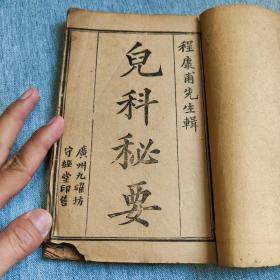 程康甫先生輯
兒科秘要
廣州九曜坊
守經堂印售